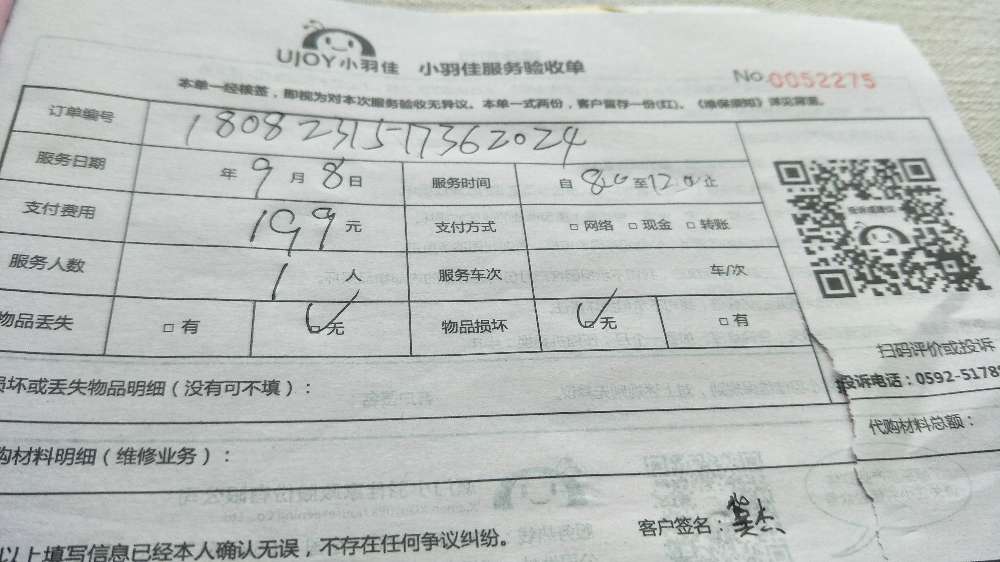 UJOY小羽佳 小羽佳服务验收单 No.0052275
本单一经核签，即视为对本次服务验收无异议。本单一式两份，客户留存一份(红)。《维保须知》详见背面。
订单编号 1808231517362024
服务日期 年 9 月 8 日 服务时间 自 8:00 至 12:00 止
支付费用 199 元 支付方式 □ 网络 □ 现金 □ 转账
服务人数 1 人 服务车次 车/次
物品丢失 □ 有 □ 无 物品损坏 □ 无 □ 有
扫码评价或投诉
损坏或丢失物品明细（没有可不填）： 投诉电话：0592-5178
代购材料总额：
购材料明细（维修业务）：
客户签名：
以上填写信息已经本人确认无误，不存在任何争议纠纷。